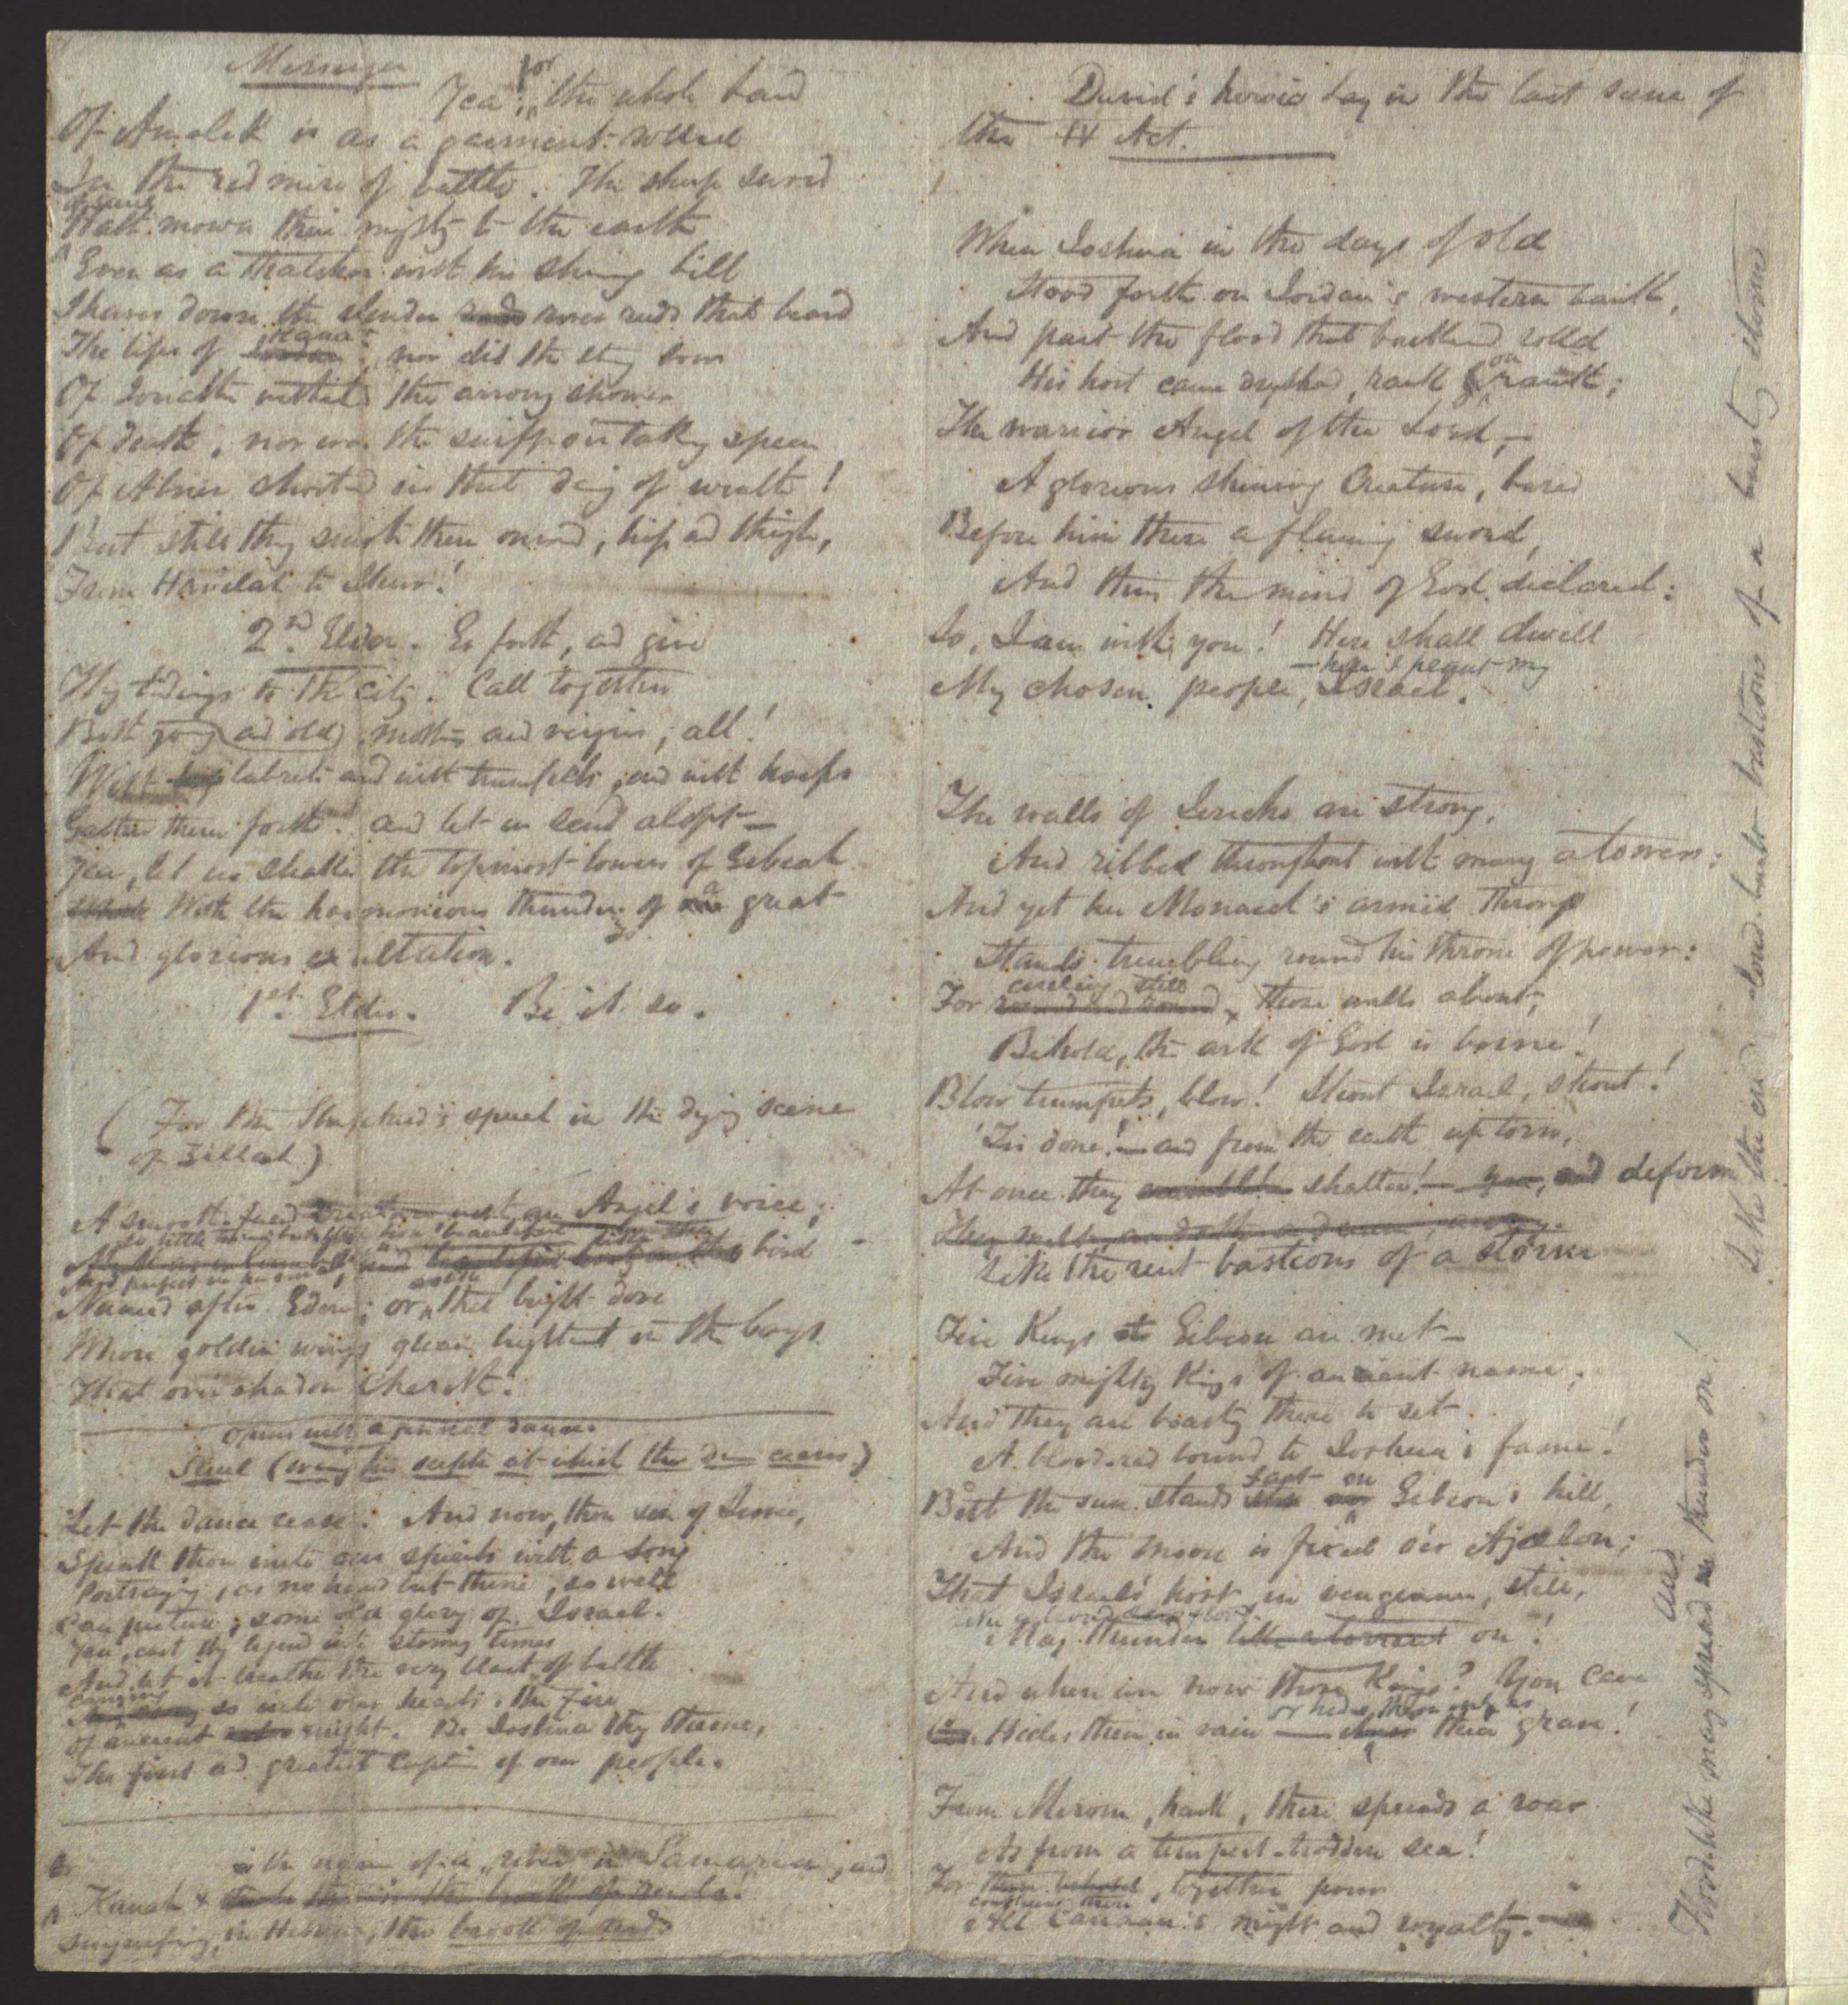 Messenger
Yea; for the whole land
Of Amalek is as a garment rolled
In the red mire of battle. The sharp sword
Hath mown their mighty to the earth
Even as a thatcher with his shining bill
Shears down the slender river reeds that beard
The lips of Kanah; nor did the strong bow
Of Jonathan withhold the arrowy shower
Of death, nor was the swift-o'ertaking spear
Of Abner shortened in that day of wrath!
But still they smote them onward, hip and thigh,
From Havilah to Shur!
2nd. Elder. Go forth, and give
Thy tidings to the city. Call together
Both young and old, mothers and virgins, all!
With tabrets and with trumpets, and with harps
Gather them forth: and let us send aloft—
Yea, let us shatter the topmost towers of Gibeah
With the harmonious thunder of a great
And glorious exultation.
1st. Elder. Be it so.
(For the Shepherd's speech in the dying scene
of Zillah)
A smooth-faced creature with an Angel's voice;
bird
Named after Eden; or, that bright dove
Whose golden wings gleam brightest in the boughs
That overshadow Cherith.
opens with a dance.
Saul (waving his sceptre at which the dance ceases)
Let the dance cease. And now, thou son of Jesse,
Speak thou unto our spirits with a song
Portraying, as no hand but thine, so well
Can picture, some old glory of Israel.
Yea, cast thy legend into stormy times
And let it breathe the very blast of battle
so into our hearts, the fire
Of ancient might. Be Joshua thy theme,
The first and greatest Captain of our people.
is the name of a river in Samaria, and
Kanah x
signifying, in Hebrew, the brook of reeds
David's heroic lay in the last scene of
the IV Act.
When Joshua in the days of old
Stood forth on Jordan's western bank,
And past the flood that backward rolled
His host came dryshod, rank on rank;
The warrior Angel of the Lord,—
A glorious shining Creature, bared
Before him there a flaming sword,
And thus the mind of God declared:
Lo, I am with you! Here shall dwell
My chosen people, Israel.
The walls of Jericho are strong,
And ribbed throughout with many a tower:
And yet her Monarch's arméd throng
Stands trembling round his throne of power:
circling still
For round and round, those walls about,
Behold, the ark of God is borne!
Blow trumpets, blow! Shout Israel, shout!
'Tis done!—and from the earth uptorn,
At once they shatter!— and deform
Like the rent bastions of a storm
Five Kings at Gibeon are met—
Five mighty Kings of ancient name;
And they are boasting there to set
A blood-red bound to Joshua's fame!
But the sun stands fast on Gibeon's hill,
And the moon is fixed o'er Ajalon;
That Israel's host in vengeance, still,
May thunder like a torrent on!
And where are now those Kings? Yon cave
Hides them in vain — their grave!
From Merom, hark, there spreads a roar
As from a tempest-trodden sea!
For together pour
All Canaan's might and royalty.—
Like the rent cloud-built bastions of a bursty storm
Flood-like may spread and thunder on!